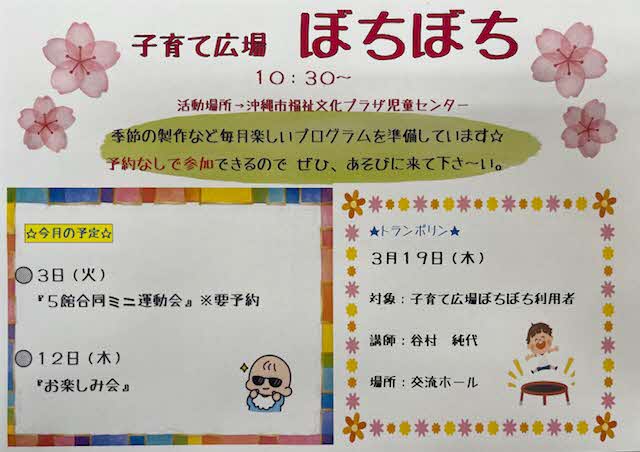 子育て広場 ぼちぼち
10:30～
活動場所→沖縄市福祉文化プラザ児童センター
季節の製作など毎月楽しいプログラムを準備しています☆
予約なしで参加できるので ぜひ、あそびに来て下さ～い。
☆今月の予定☆
3日（火）
『5館合同ミニ運動会』※要予約
12日（木）
『お楽しみ会』
★トランポリン★
3月19日（木）
対象：子育て広場ぼちぼち利用者
講師：谷村 純代
場所：交流ホール